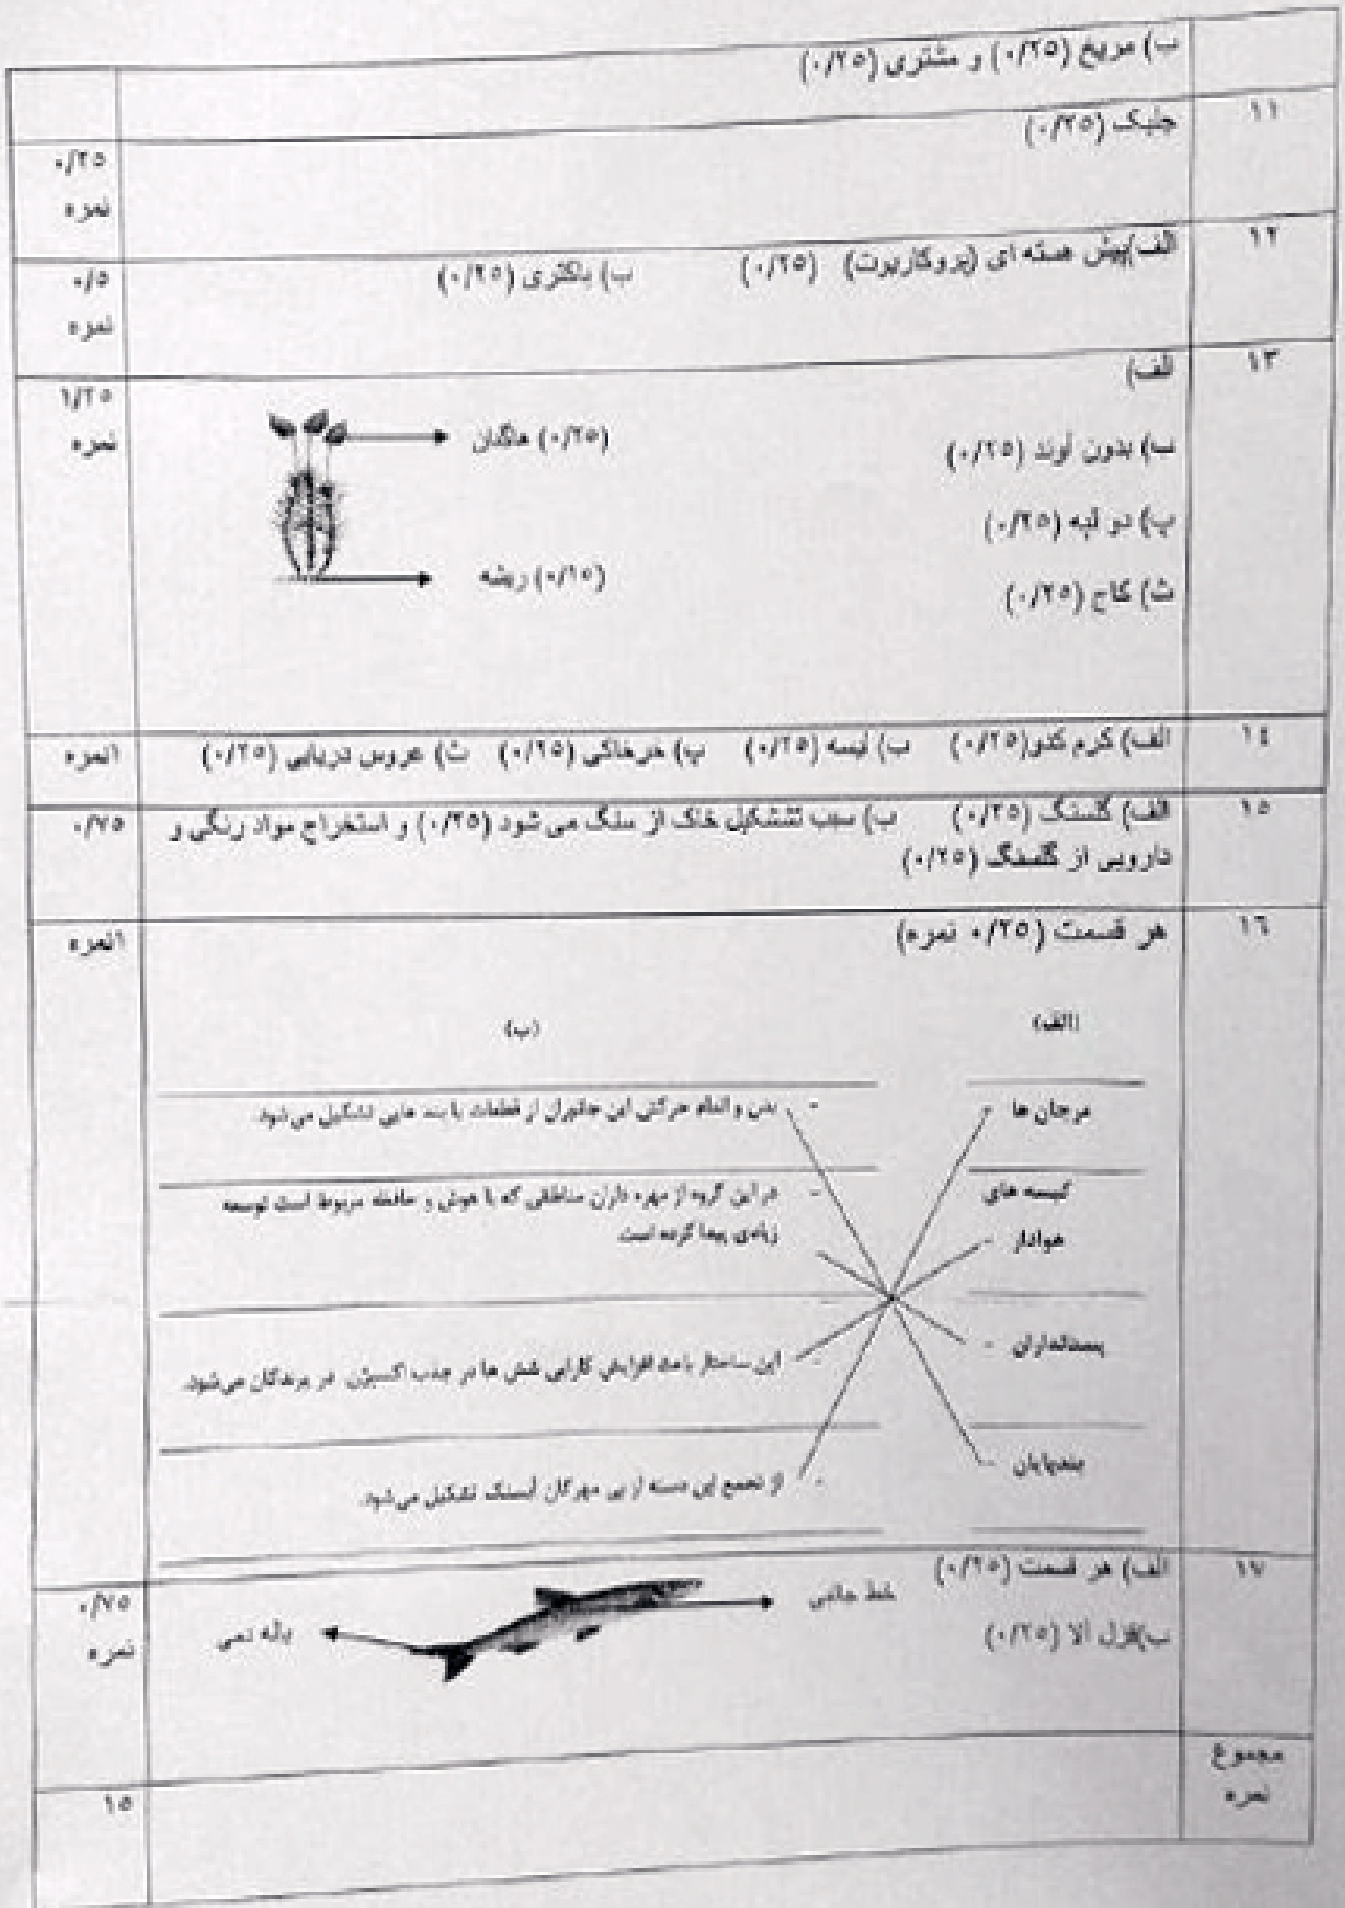 ب) مریخ (۰/۲۵) و مشتری (۰/۲۵)
۱۱
جلبک (۰/۲۵)
۰/۲۵
نمره
۱۲
الف)پیش هسته ای (پروکاریوت) (۰/۲۵) ب) باکتری (۰/۲۵)
۰/۵
نمره
۱۳
الف)
ب) بدون آوند (۰/۲۵)
پ) دو لپه (۰/۲۵)
ث) کاج (۰/۲۵)
هاگدان (۰/۲۵)
ریشه (۰/۲۵)
۱/۲۵
نمره
۱٤
الف) کرم کدو(۰/۲۵) ب) لیسه (۰/۲۵) پ) خرخاکی (۰/۲۵) ث) عروس دریایی (۰/۲۵)
۱نمره
۱۵
الف) گلسنگ (۰/۲۵) ب) سبب تششکیل خاک از سنگ می شود (۰/۲۵) و استخراج مواد رنگی و
دارویی از گلسنگ (۰/۲۵)
۰/۷۵
۱٦
هر قسمت (۰/۲۵ نمره)
۱نمره
(الف)
(ب)
مرجان ها -
- بدن و اندام حرکتی این جانوران از قطعات یا بند هایی تشکیل می شود.
کیسه های
هوادار -
- در این گروه از مهره داران مناطقی که با هوش و حافظه مربوط است توسعه
زیادی پیدا کرده است.
پستانداران -
- این ساختار باعث افزایش کارایی شش ها در جذب اکسیژن در پرندگان می‌شود.
بندپایان -
- از تجمع این دسته از بی مهرگان آبسنگ تشکیل می‌شود.
۱۷
الف) هر قسمت (۰/۲۵)
خط جانبی
باله دمی
ب)قزل آلا (۰/۲۵)
۰/۷۵
نمره
مجموع
نمره
۱۵